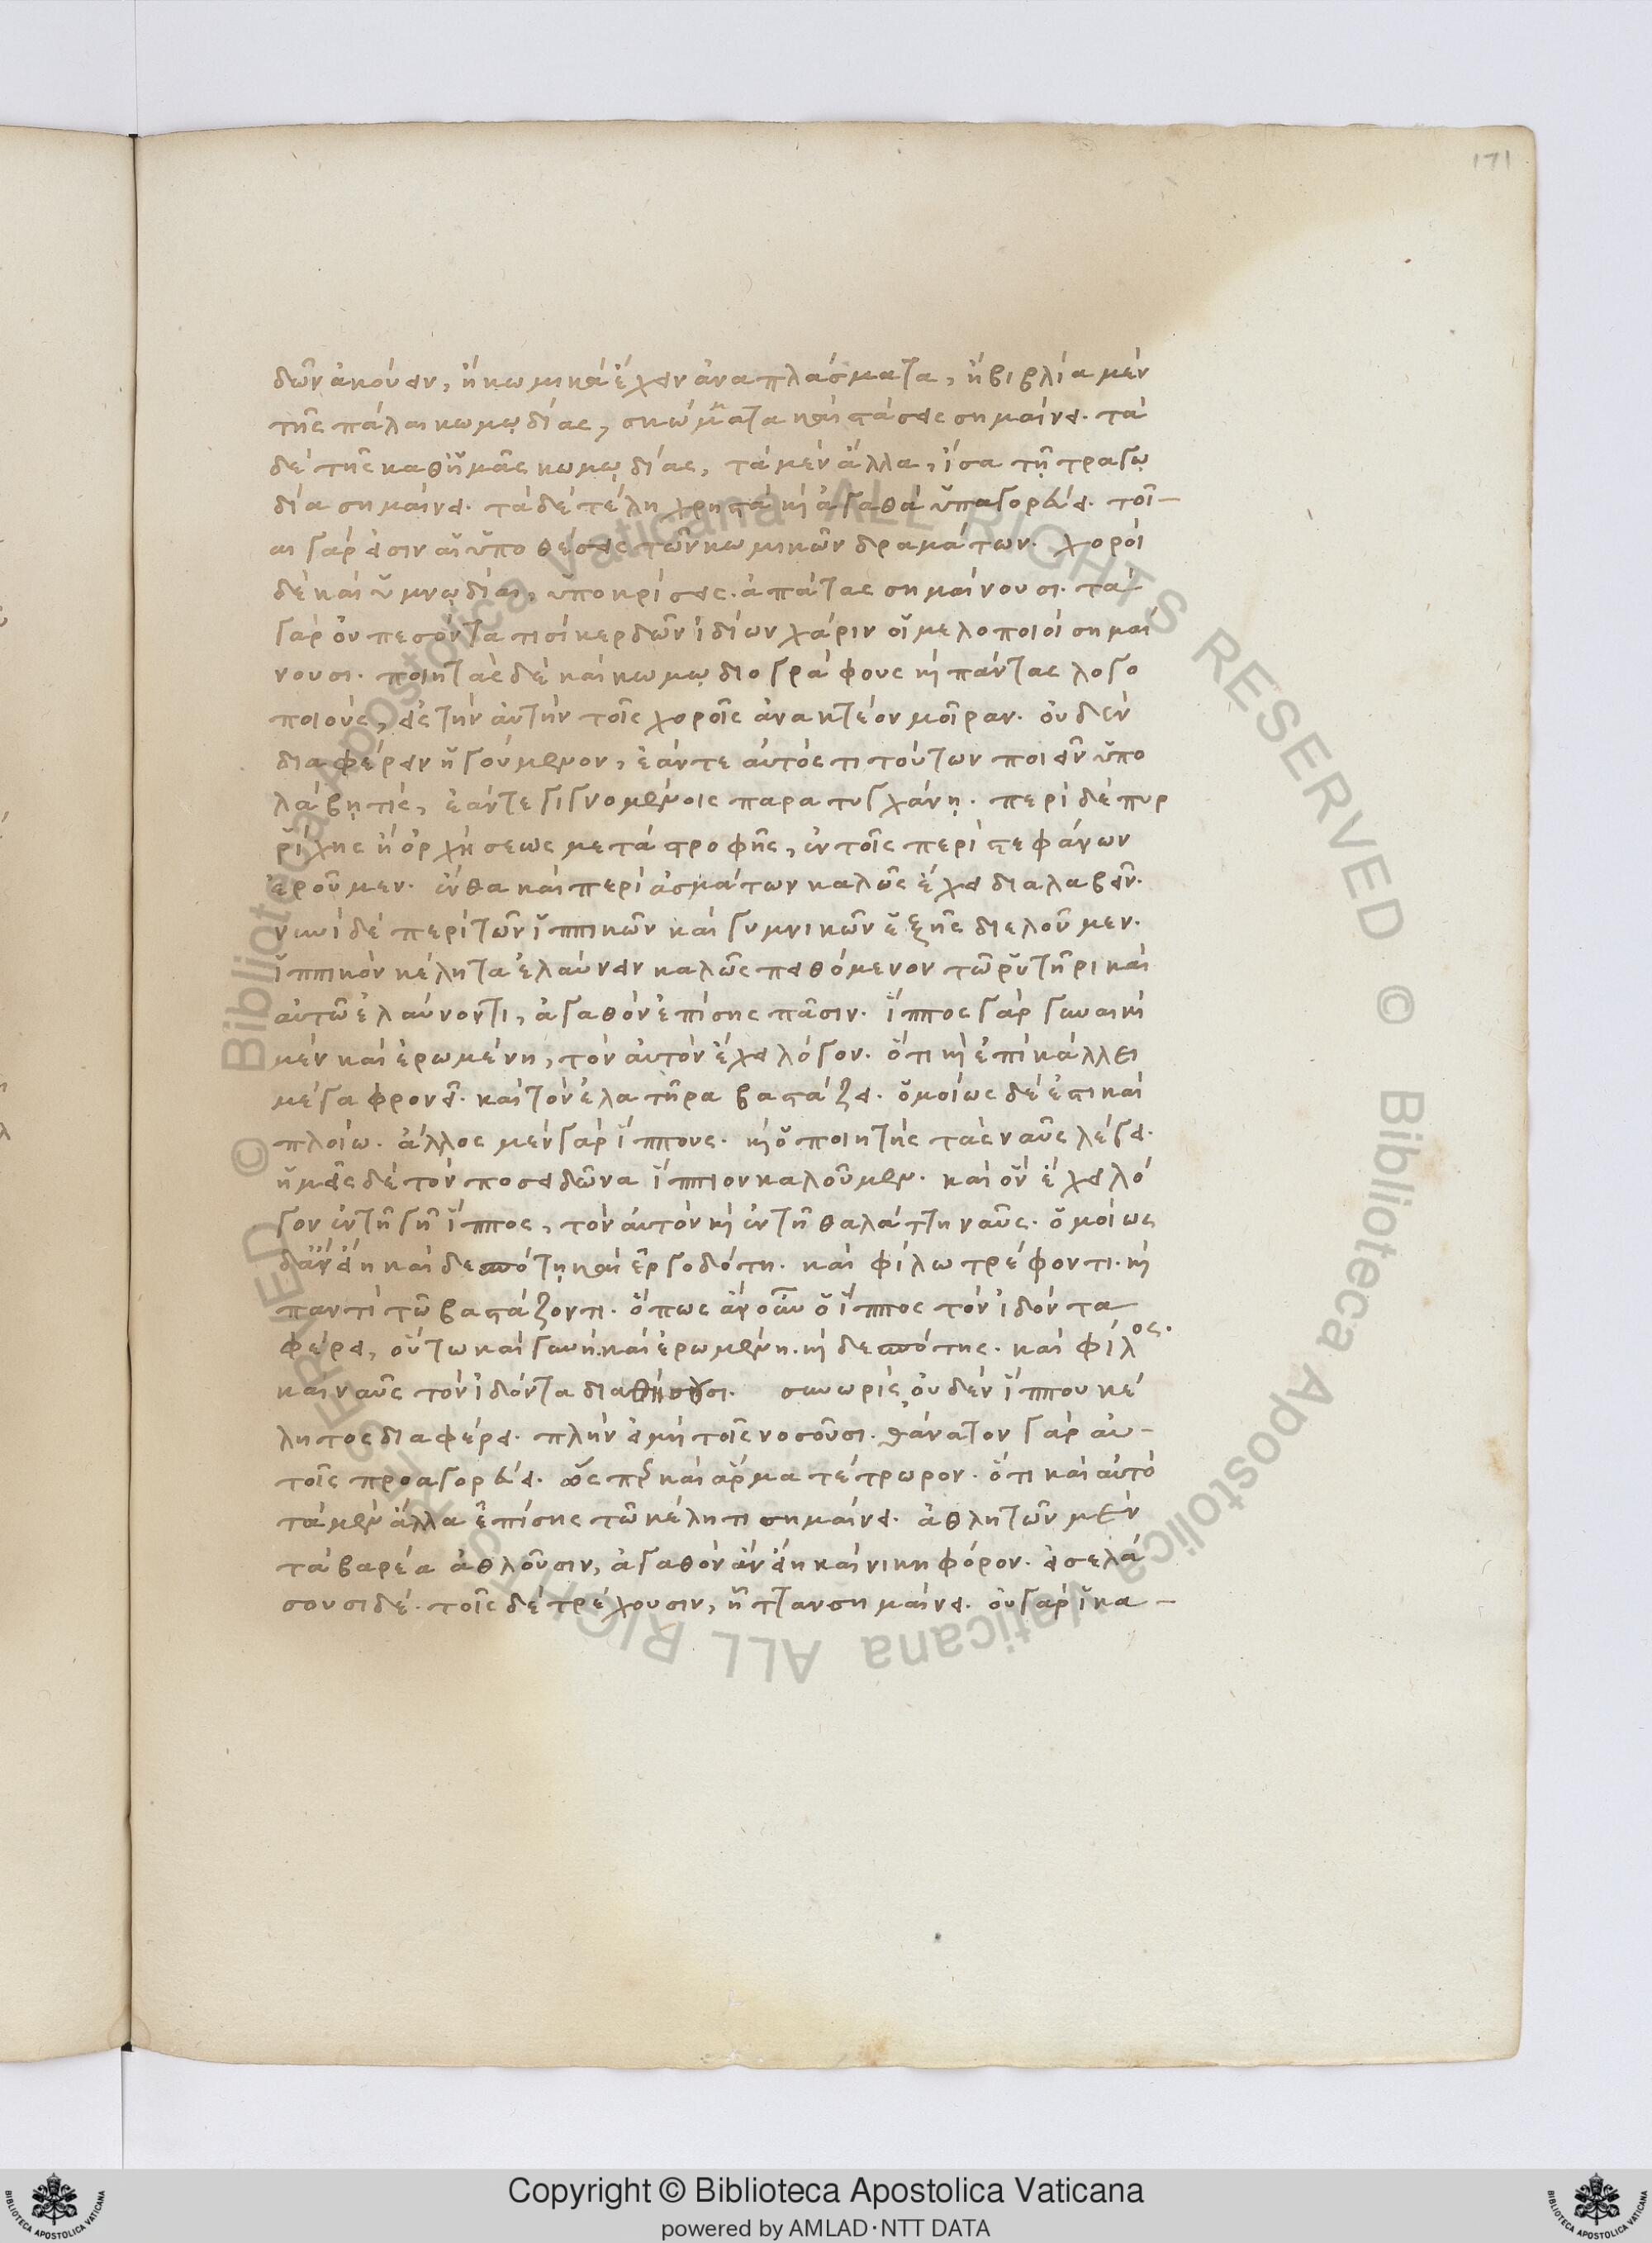 171
δῶν ἀκούειν, ἢ κωμικὰ ἔχειν ἀναπλάσματα, ἢ βιβλία μὲν
τῆς πάλαι κωμῳδίας, σκώμματα καὶ στάσεις σημαίνει. τὰ
δὲ τῆς καθ ἡμᾶς κωμῳδίας, τὰ μὲν ἄλλα, ἴσα τῇ τραγῳ
δία σημαίνει. τὰ δὲ τέλη χρηστὰ κὶ ἀγαθὰ ὑπαγορεύει. τοῖ-
αι γάρ εἰσιν αἱ ὑποθέσεις τῶν κωμικῶν δραμάτων. χοροὶ
δὲ καὶ ὑμνῳδίαι, ὑποκρίσεις. ἀπάτας σημαίνουσι. τὰ
γὰρ ὀν πεσόντα τισὶ κερδῶν ἰδίων χάριν οἱ μελοποιοὶ σημαί
νουσι. ποιητὰς δὲ καὶ κωμῳδιογράφους κὶ πάντας λογο
ποιοὺς, εἰς τὴν ἀυτὴν τοῖς χοροῖς ἀνακτέον μοῖραν. οὐδὲν
διαφέρειν ἡγούμενον, ἐάν τε αὐτός τι τούτων ποιεῖν ὑπο
λάβῃ τίς, ἐάν τε γιγνομένοις παρατυγχάνῃ. περὶ δὲ πυρ
ρίχης ἢ ὀρχήσεως μετὰ στροφῆς, ἐν τοῖς περὶ στεφάνων
ἐροῦμεν. ἔνθα καὶ περὶ ἀσμάτων καλῶς ἔχει διαλαβεῖν.
νυνὶ δὲ περὶ τῶν ἱππικῶν καὶ γυμνικῶν ἑξῆς διελοῦμεν.
ἱππικὸν κέλητα ἐλαύνειν καλῶς πειθόμενον τῶ ῥυτῆρι καὶ
αὐτῶ ἐλαύνοντι, ἀγαθὸν ἐπίσης πᾶσιν. ἵππος γὰρ γυναικὶ
μὲν καὶ ἐρωμένη, τὸν ἀυτὸν ἔχει λόγον. ὅτι κὶ ἐπὶ κάλλει
μέγα φρονεῖ. καὶ τὸν ἐλατῆρα βαστάζει. ὁμοίως δέ ἐστι καὶ
πλοίω. ἄλλος μὲν γὰρ ἵππους. κὶ ὁ ποιητὴς τὰς ναῦς λέγει.
ἡμεῖς δὲ τὸν ποσειδῶνα ἵππιον καλοῦμεν. καὶ ὃν ἔχει λό
γον ἐν τῇ γῇ ἵππος, τὸν ἀυτὸν κὶ ἐν τῇ θαλάττη ναῦς. ὁμοίως
δ ἂν εἴη καὶ δεσπότῃ καὶ ἐργοδότη. καὶ φίλω τρέφοντι. κὶ
παντὶ τῶ βαστάζοντι. ὅπως ἂν οὖν ὁ ἵππος τὸν ἰδόντα
φέρει, οὕτω καὶ γυνή. καὶ ἐρωμένη. κὶ δεσπότης. καὶ φίλος.
καὶ ναῦς τὸν ἰδόντα διαθήσουσι. συνωρὶς, οὐδὲν ἵππου κέ
λητος διαφέρει. πλὴν εἰ μὴ τοῖς νοσοῦσι. θάνατον γὰρ αὐ-
τοῖς προαγορεύει. ὥσπερ καὶ ἅρμα τέτρωρον. ὅτι καὶ αὐτὸ
τὰ μὲν ἄλλα ἐπίσης τῶ κέλητι σημαίνει. ἀθλητῶν μὲν
τὰ βαρέα ἀθλοῦσιν, ἀγαθὸν ἂν εἴη καὶ νικηφόρον. εἰσελά
σουσι δέ. τοῖς δὲ τρέχουσιν, ἧτταν σημαίνει. οὐ γὰρ ἱκα-
Copyright © Biblioteca Apostolica Vaticana
powered by AMLAD·NTT DATA